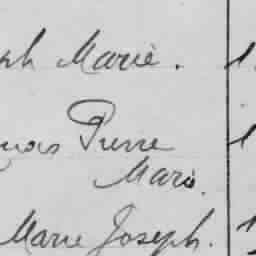 ph Marie. 1
Pierre 1
Marie.
Marie Joseph. 1